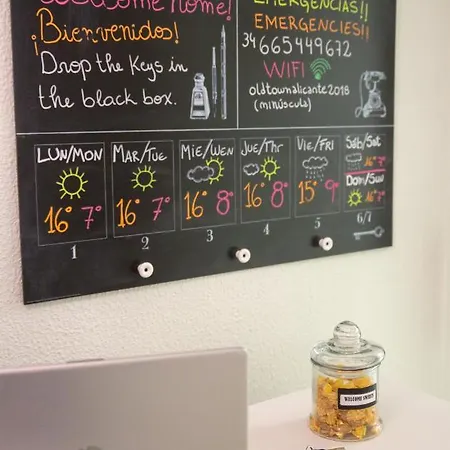 home!
¡Bienvenidos!
Drop the keys in
the black box.
EMERGENCIAS!!
EMERGENCIES!!
34 665449672
WIFI
oldtownalicante2018
(minúscula)
LUN/MON
16° 7°
1
MAR/TUE
16° 7°
2
MIE/WEN
16° 8°
3
JUE/THr
16° 8°
4
VIE/FRI
15° 9°
5
Sáb/Sat
16° 7°
Dom/Sun
16° 7°
6/7
WELCOME SWEETS